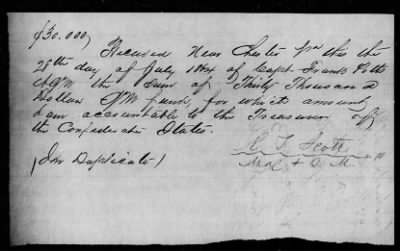 $30.000,
Received Near Chester Va this the
28th day of July 1864 of Capt Frank Potts
AQM the Sum of Thirty Thousand
Dollars QM funds, for which amount
I am accountable to the Treasurer of
the Confederate States.
Scott
Maj & Q.M.
(In Duplicate)